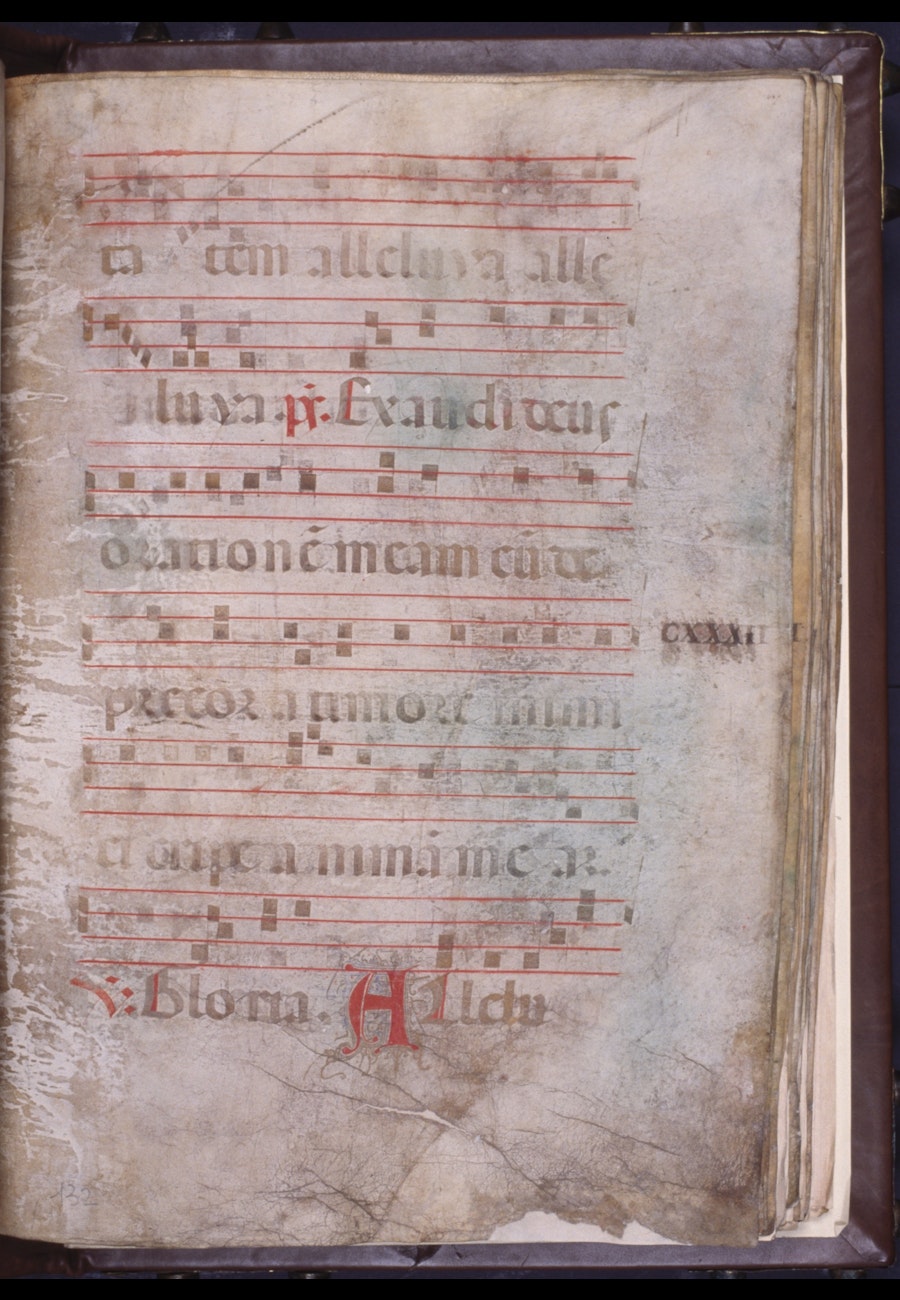 ta tem alleluya alle
luya. ps. Exaudi deus
orationē meam cū de
precor a timore inim
CXXXIII
ci eripe animā meā
V. Gloria. A Llelu
132